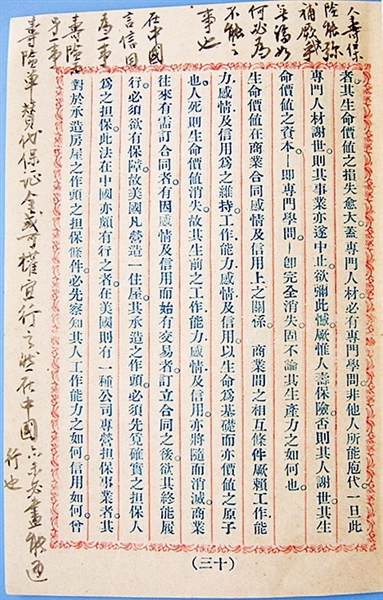 人壽保
險能彌
補厥憾
何必為
不能之
事也
在中國
言信用
為事
壽險
者。其生命價值之損失愈大。蓋專門人材。必有專門學問。非他人所能庖代。一旦此
專門人材謝世。則其事業亦遂中止。欲彌此憾。厥惟人壽保險。否則其人謝世。其生
命價值之資本—即專門學問—卽完全消失。固不論其生產力之如何也。
生命價值在商業合同感情及信用上之關係。 商業間之相互條件。厥賴工作能
力。感情及信用爲之維持。工作能力感情及信用。以生命爲基礎。而亦價值之原子
也。人死則生命價值消失。故其生前之工作能力感情及信用。亦將隨而消滅。商業
往來有需訂合同者。有因感情及信用而始有交易者。訂立合同之後。欲其終能履
行。必須欲有保障。故美國凡營造一住屋。其承造之作頭。必須先覓確實之担保人
爲之担保。此法在中國亦頗有行之者。在美國則有一種公司專營担保事業者。其
對於承造房屋之作頭之担保條件。必先察知其人工作能力之如何。信用如何。曾
壽險單贊代保證金或可權宜行之然在中國亦未必盡能通
行也
(三十)